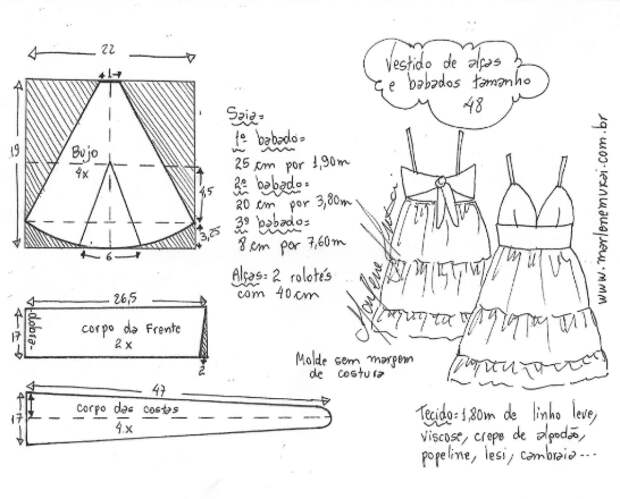 Vestido de alças
e babados tamanho
48
22
1
19
Bujo
4x
4,5
3,25
6
Saia=
1º babado=
25 cm por 1,90m
2º babado=
20 cm por 3,80m
3º babado=
8 cm por 7,60m
Alças= 2 rolotés
com 40cm
26,5
17
dobra
corpo da Frente
2x
2
47
17
corpo das costas
4x
Molde sem margem
de costura
Marlene Mukai
Tecido=1,80m de linho leve,
viscose, crepe de algodão,
popeline, lesi, cambraia...
www.marlenemukai.com.br